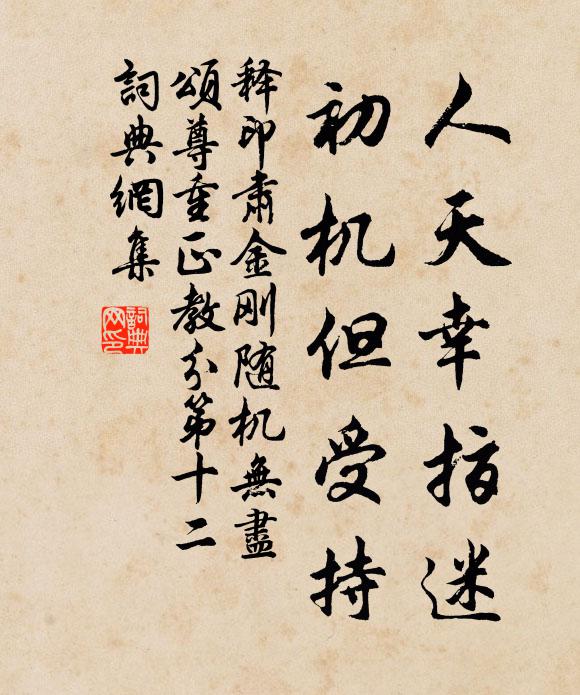 人天幸指迷
初机但受持
释印肃金刚随机無盡
頌尊重正教分第十二
詞典網集
詞典
网印